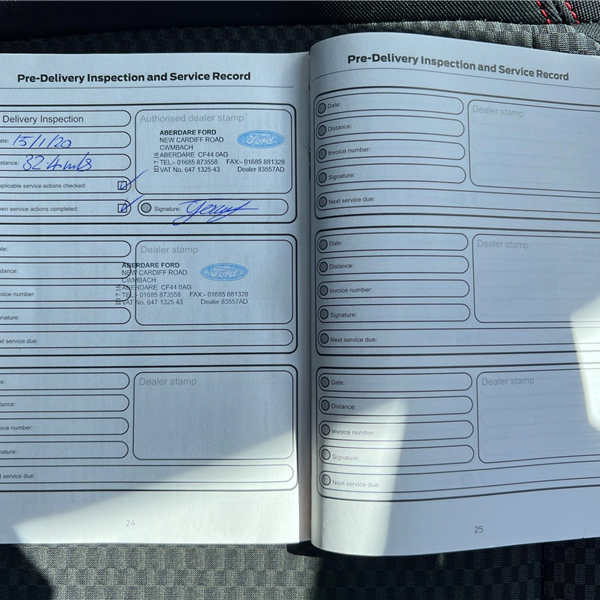 Pre-Delivery Inspection and Service Record
Delivery Inspection
ate: 15/1/20
stance: 82 4 mls
pplicable service actions checked:
en service actions completed:
Authorised dealer stamp
ABERDARE FORD
NEW CARDIFF ROAD
CWMBACH
ABERDARE CF44 0AG
TEL:- 01685 873558 FAX:- 01685 881328
VAT No. 647 1325 43 Dealer 83557AD
Ford
Signature:
ate:
stance:
oice number:
gnature:
xt service due:
Dealer stamp
ABERDARE FORD
NEW CARDIFF ROAD
CWMBACH
ABERDARE CF44 0AG
TEL:- 01685 873558 FAX:- 01685 881328
VAT No. 647 1325 43 Dealer 83557AD
Ford
ate:
tance:
oice number:
nature:
t service due:
Dealer stamp
24
Pre-Delivery Inspection and Service Record
Date:
Distance:
Invoice number:
Signature:
Next service due:
Dealer stamp
Date:
Distance:
Invoice number:
Signature:
Next service due:
Dealer stamp
Date:
Distance:
Invoice number:
Signature:
Next service due:
Dealer stamp
25